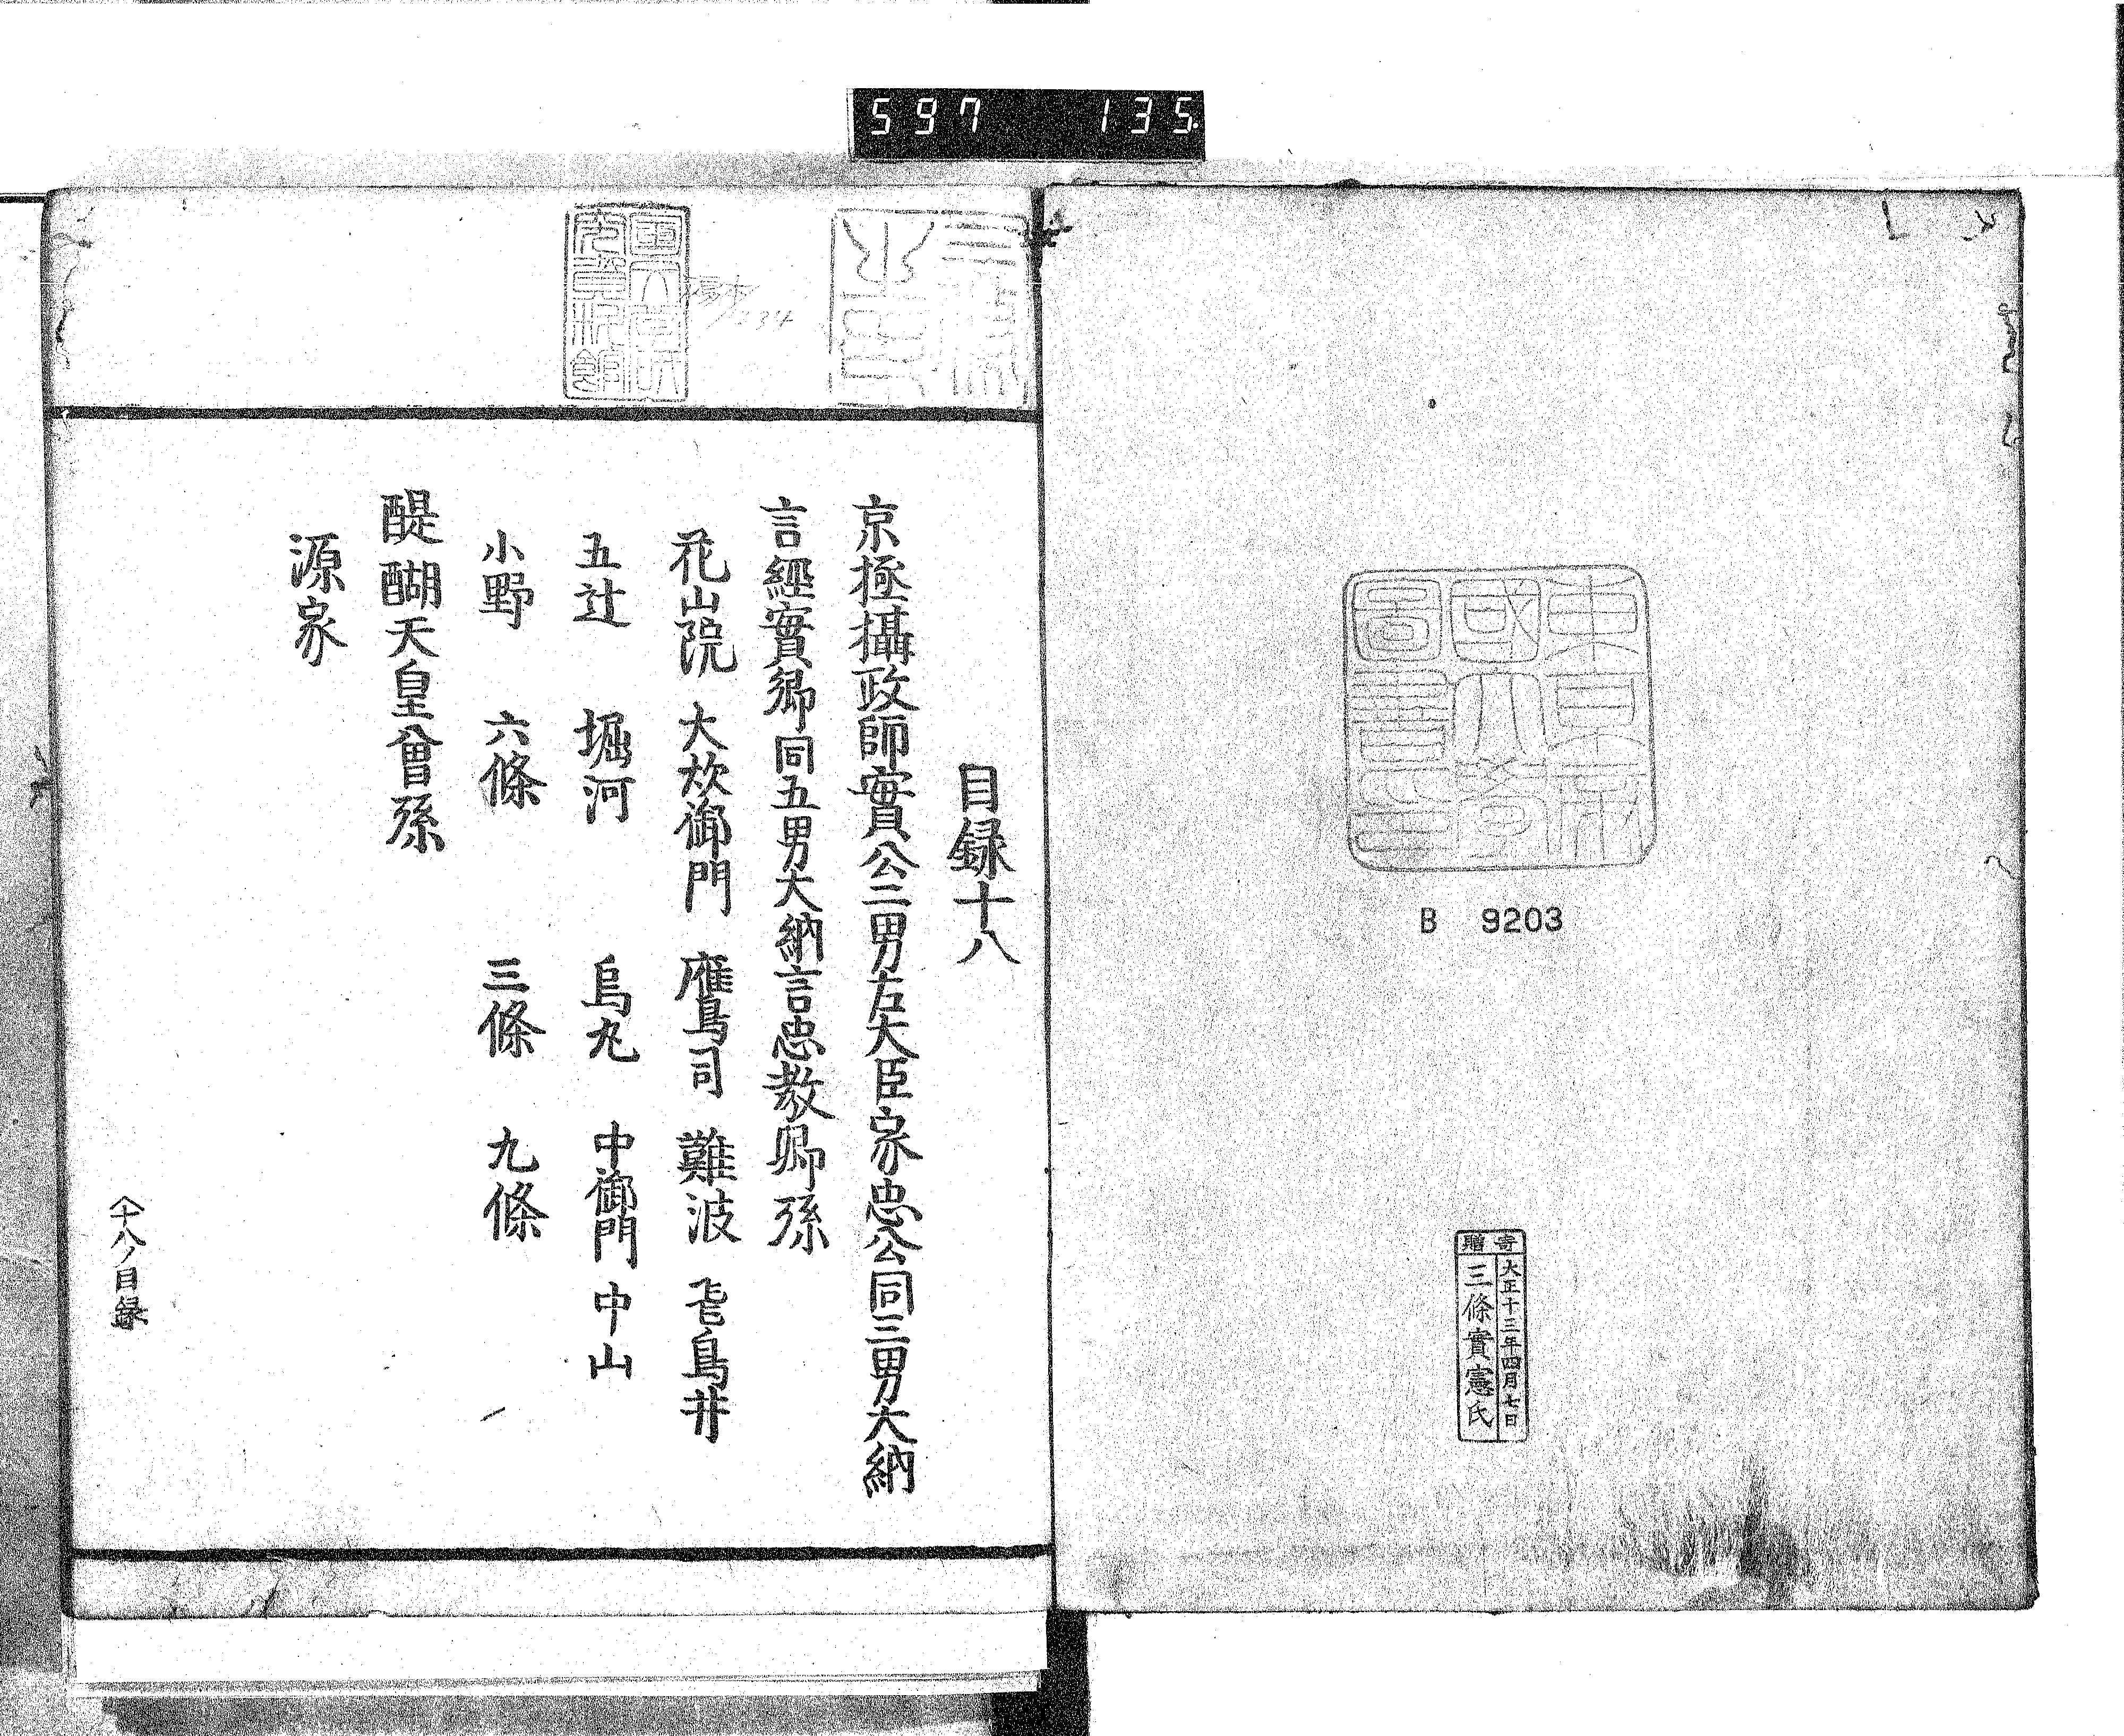 597 135
東京帝
國大學
圖書印
B 9203
寄贈
大正十三年四月七日
三條實憲氏
目録十八
京極攝政師實公二男左大臣家忠公同三男大納
言經實卿同五男大納言忠教卿孫
花山院 大炊御門 鷹司 難波 飛鳥井
五辻 堀河 烏丸 中御門 中山
小野 六條 三條 九條
醍醐天皇曾孫
源家
十八ノ目録